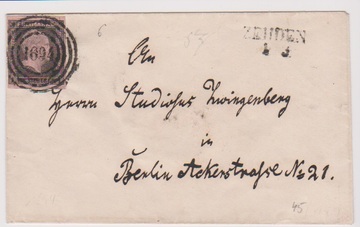 1694
ZEHDEN
4 5
An
Herrn Studiosus Zwingenberg
in
Berlin Ackerstrasse No 21.
45